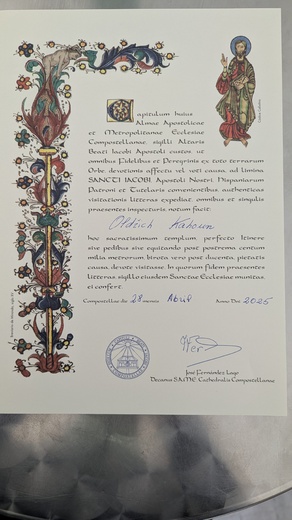 Capitulum huius
Almae Apostolicae
et Metropolitanae Ecclesiae
Compostellanae sigilli Altaris
Beati Iacobi Apostoli custos ut
omnibus Fidelibus et Peregrinis ex toto terrarum
Orbe, devotionis affectu vel voti causa, ad limina
SANCTI IACOBI Apostoli Nostri Hispaniarum
Patroni et Tutelaris convenientibus, authenticas
visitationis litteras expediat, omnibus et singulis
praesentes inspecturis, notum facit:
Oldřich Kahoun
hoc sacratissimum templum, perfecto Itinere
sive pedibus sive equitando post postrema centum
milia metrorum, birota vero post ducenta, pietatis
causa, devote visitasse. In quorum fidem praesentes
litteras, sigillo eiusdem Sanctae Ecclesiae munitas,
ei confert.
Compostellae die 28 mensis Abril Anno Dni 2025
José Fernández Lago
Decanus S.A.M.E. Cathedralis Compostellanae